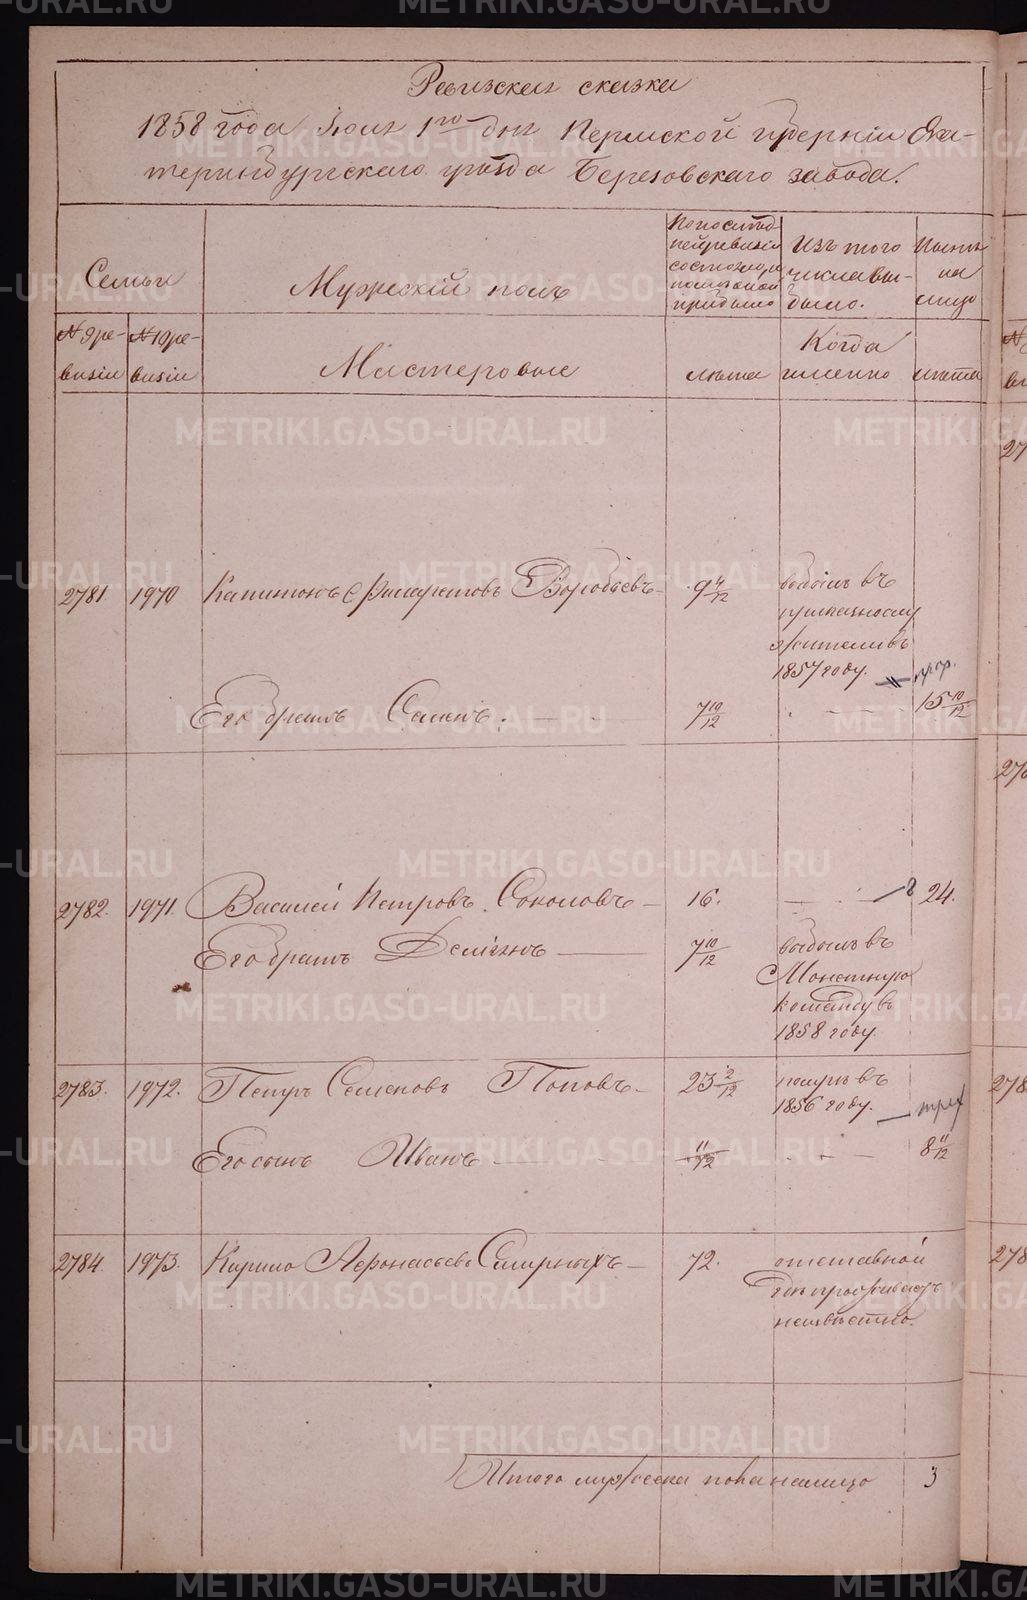 Ревизская сказка
1858 года Июля 1го дня Пермской губернiи Ека-
теринбургскаго уезда Березовскаго завода.
Семьи
Мужескiй полъ
По послед
ней ревизiи
состояло и
после оной
прибыло
Изъ того
числа вы-
было.
Ныне
на
лицо
№ 9 ре-
визiи
№ 10 ре-
визiи
Мастеровые
лета
Когда
именно
лета
2781
1970
Капитонъ Филаретовъ Воробьевъ
9 4/12
выбылъ въ
1857 году.
Его братъ Семенъ.
7 10/12
15 10/12
2782.
1971.
Василей Петровъ Соколовъ
16.
24.
Его братъ
7 10/12
выбылъ въ
Монетную
команду въ
1858 году.
2783.
1972.
Петръ Семеновъ Поповъ
23 2/12
умеръ въ
1856 году.
Его сынъ Иванъ
11/12
8 11/12
2784.
1973.
Кирило Афонасьевъ Смирныхъ
72.
отставной
где проживаетъ
неизвестно.
Итого мужеска пола налицо
3
METRIKI.GASO-URAL.RU